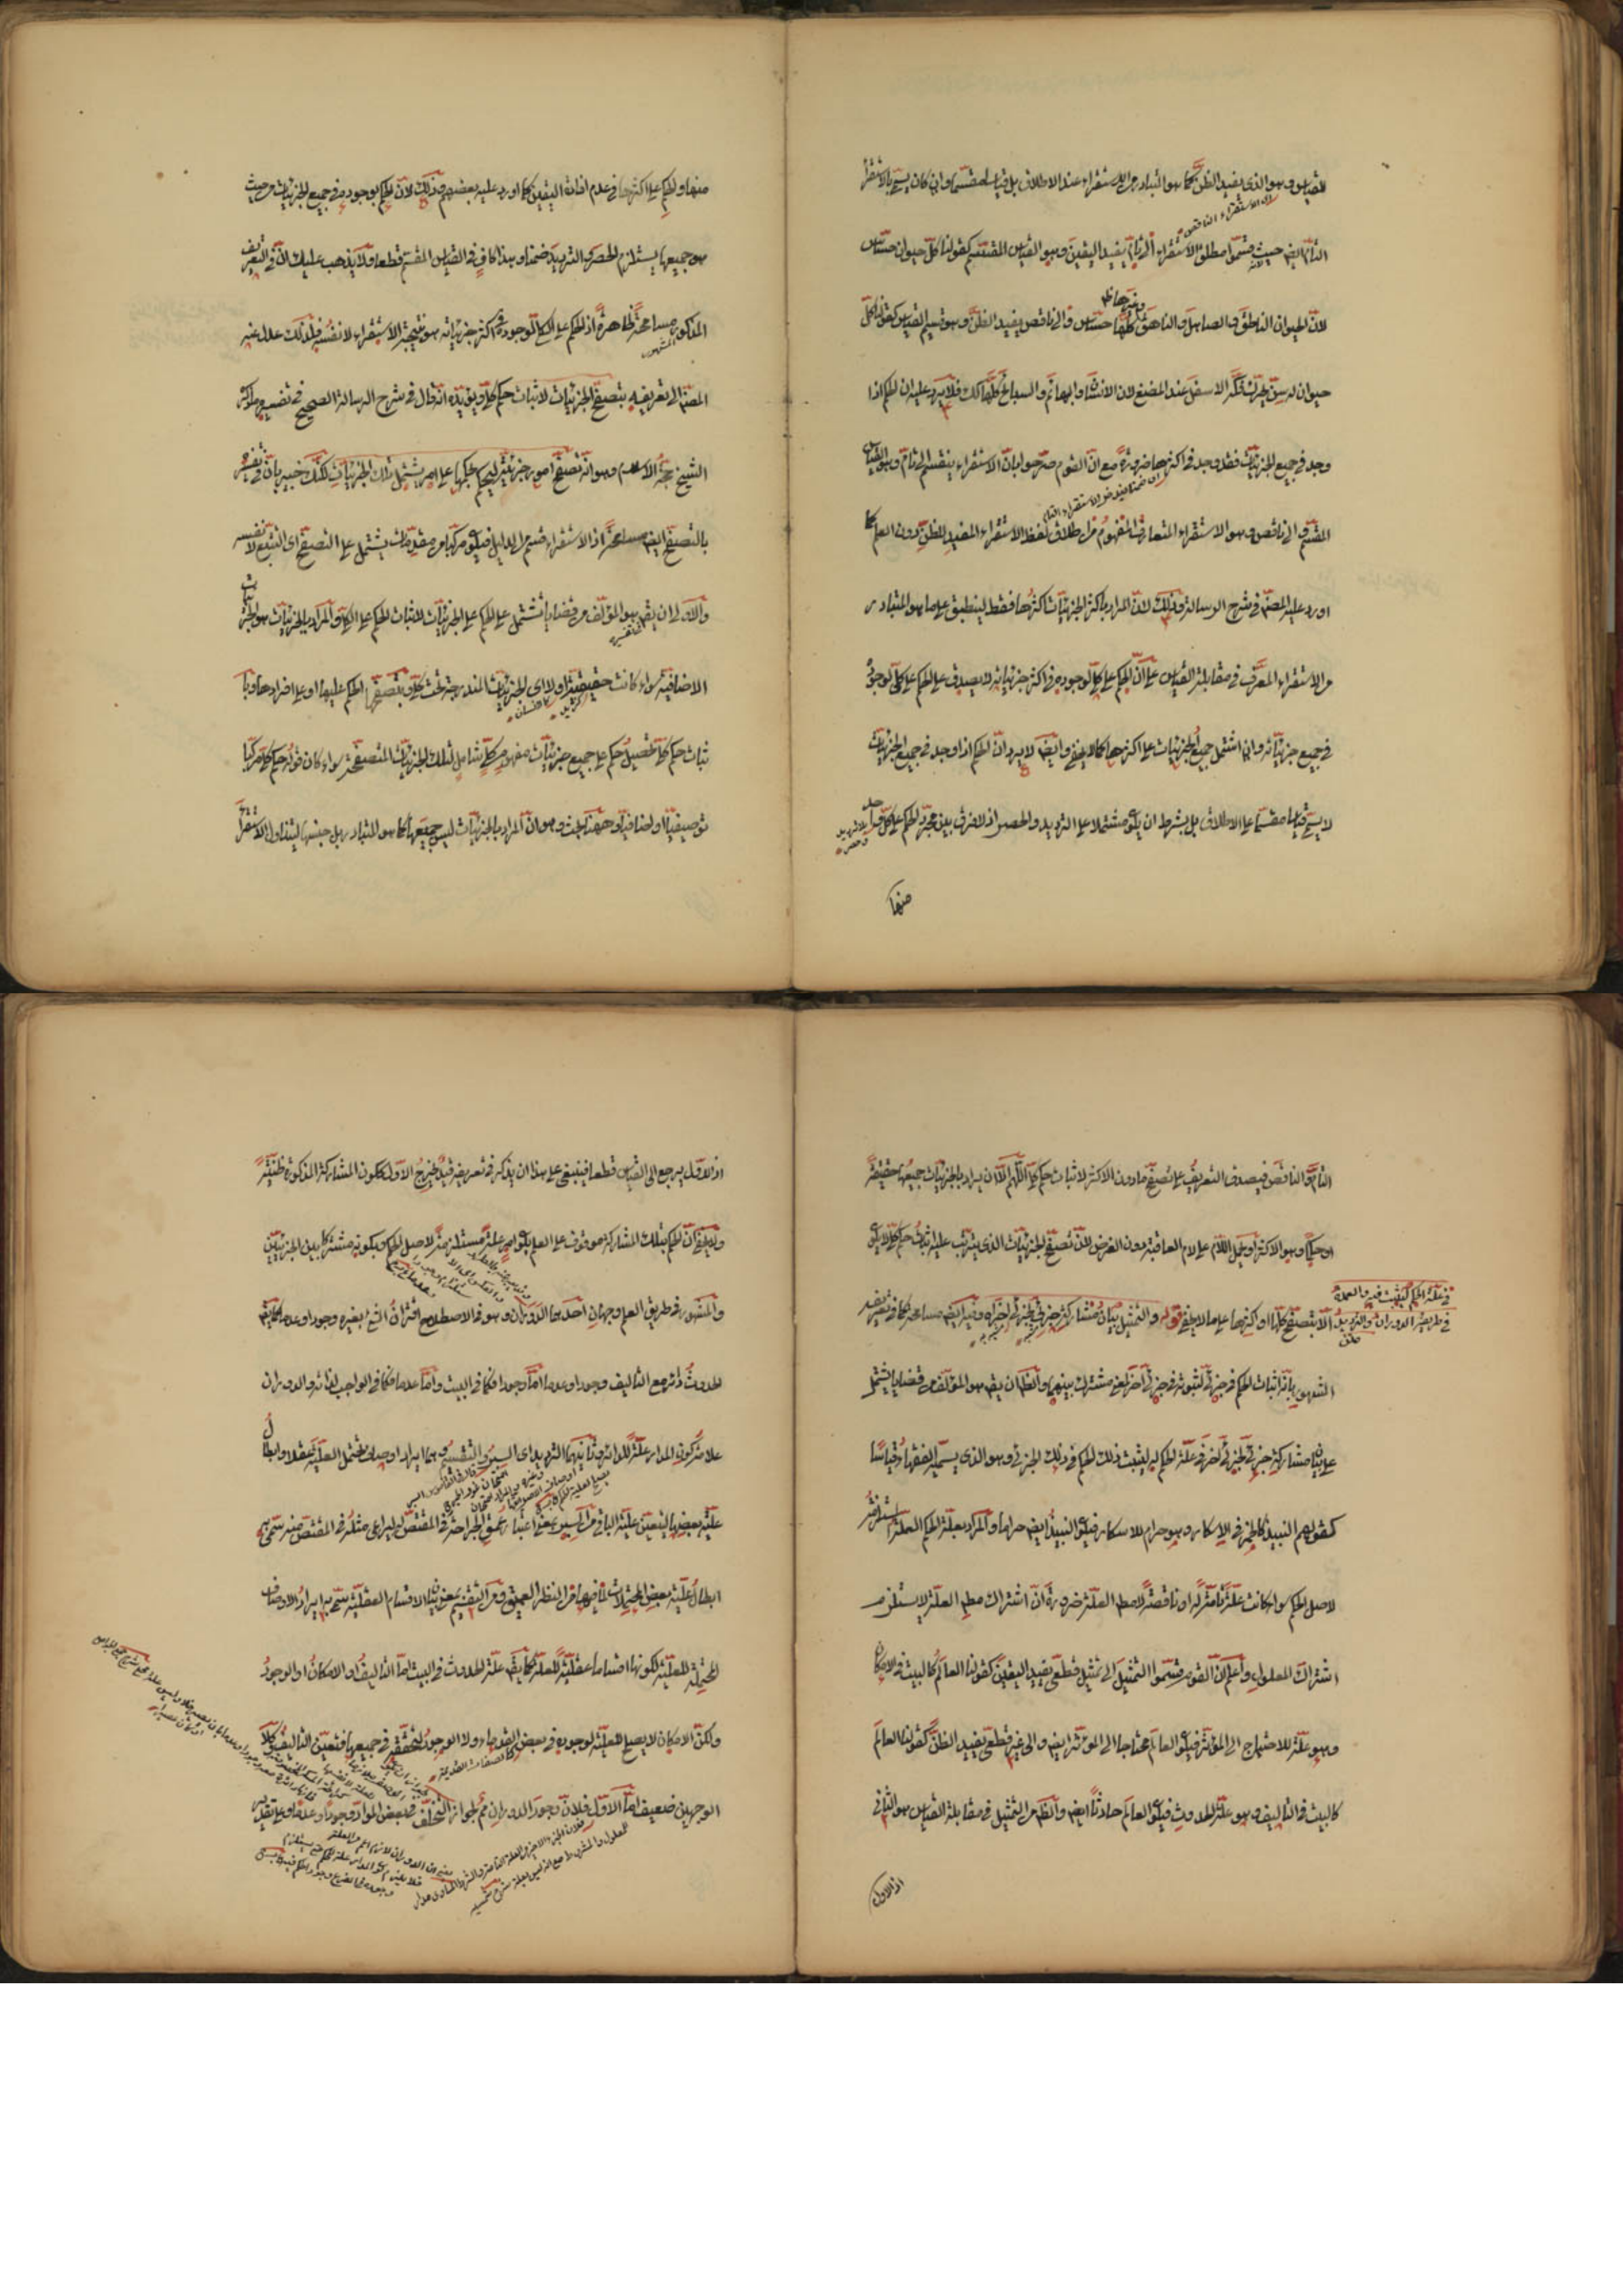 للقياس وهو الذى يفيد الظن كما هو المتبادر من الاستقراء عند الاطلاق بل قياسا مقسما وان كان يسمى بالاستقراء
اى الاستقراء الناقص
التام ايضا حيث قسموا مطلق الاستقراء الى تام يفيد اليقين وهو القياس المقسم كقولنا كل حيوان حساس
وغيرها
لان الحيوان الناطق والصاهل والناهق كلها حساس والى ناقص يفيد الظن وهو قسيم القياس كقولنا كل
حيوان يحرك فكه الاسفل عند المضغ لان الانسان والبهائم والسباع كلها كذلك فلا يرد عليه ان الحكم اذا
وجد فى جميع الجزئيات فقد وجد فى اكثرها ضرورة مع ان القوم صرحوا بان الاستقراء ينقسم الى تام وهو القياس
المقسم والى ناقص وهو الاستقراء المتعارف المفهوم من اطلاق لفظ الاستقراء المفيد للظن دون العلم كما
اورد عليه المصنف فى شرح الرسالة وذلك لان المراد باكثر الجزئيات اكثرها فقط لينطبق على ما هو المتبادر
من الاستقراء المعرف فى مقابلة القياس على ان الحكم على كلى لوجوده فى اكثر جزئياته لا يصدق على الحكم على كلى لوجوده
فى جميع جزئياته وان اشتمل جميع الجزئيات على اكثرها كما لا يخفى وايضا لا يرد ان الحكم اذا وجد فى جميع الجزئيات
لا يسمى قياسا مقسما على الاطلاق بل بشرط ان يكون مشتملا على الترديد والحصر اذ لا فرق بين مجرد الحكم على كل واحد
بلا ترديد وحصر
منها
منها والحكم على اكثرها فى عدم افادة اليقين كما اورد عليه بعضهم وذلك لان الحكم بوجوده فى جميع الجزئيات من حيث
هو جميعها يستلزم الحصر والترديد ضمنا وهذا كاف فى القياس المقسم قطعا ولا يذهب عليك ان فى التعريف
المذكور مسامحة ظاهرة اذ الحكم على الكلى لوجوده فى اكثر جزئياته هو نتيجة الاستقراء لا نفسه فلذلك عدل عنه
المشهور
المصنف الى تعريفه بتصفح الجزئيات لاثبات حكم كلى ويؤيده انه قال فى شرح الرسالة الصحيح فى تفسيره ما ذكره
الشيخ حجة الاسلام وهو انه تصفح امور جزئية ليحكم بحكمها على امر يشتمل تلك الجزئيات لكنك خبير بان فى تفسيره
بالتصفح ايضا مسامحة اذ الاستقراء قسم من الدليل فيكون مركبا من مقدمات يشتمل على التصفح اى التتبع لا نفسه
والاولى ان يقال هو المؤلف من قضايا تشتمل على الحكم على الجزئيات لاثبات الحكم على الكلى والمراد بالجزئيات هو الجزئيات
الاضافية سواء كانت حقيقية او لا اى الجزئيات المندرجة تحت كلى وبتصفحها الحكم عليها او على افرادها وبا
كزيد
كالانسان
ثبات حكم كلى تحصيل حكم على جميع جزئيات مفهوم كلى شامل لتلك الجزئيات المتصفحة سواء كان قوله حكم كلى مركبا
توصيفيا او اضافيا وههنا بحث وهو ان المراد بالجزئيات ليس جميعها كما هو المتبادر بل جنسها ليتناول الاستقراء
التام والناقص فيصدق التعريف على تصفح ما دون الاكثر لاثبات حكم كلى اللهم الا ان يراد بالجزئيات جميعها حقيقة
او حكما وهو الاكثر او يحمل اللام على لام العاقبة دون الغرض لان تصفح الجزئيات الذى يترتب عليه اثبات حكم كلى لا يكون
فى علة الحكم ليثبت فيه والعمدة
فى طريقه الدوران والترديد
متن
الا بتصفح كلها او اكثرها على ما لا يخفى قوله والتمثيل بيان مشاركة جزئى لجزئى آخر اه وفيه ايضا مسامحة كما فى تعريف
المشهور بانه اثبات الحكم فى جزئى لثبوته فى جزئى آخر لمعنى مشترك بينهما والظاهر ان يقال هو المؤلف من قضايا تشتمل
على بيان مشاركة جزئى لجزئى آخر فى علة الحكم له ليثبت ذلك الحكم فى ذلك الجزئى وهو الذى يسميه الفقهاء قياسا
كقولهم النبيذ كالخمر فى الاسكار وهو حرام للاسكار فيكون النبيذ ايضا حراما والمراد بعلة الحكم العلة المستلزمة
لاصل الحكم سواء كانت علة تامة له او ناقصة لا مطلق العلة ضرورة ان اشتراك مطلق العلة لا يستلزم
اشتراك المعلول واعلم ان القوم قسموا التمثيل الى تمثيل قطعى يفيد اليقين كقولنا العالم كالبيت فى الامكان
وهو علة للاحتياج الى المؤثر فيكون العالم محتاجا الى المؤثر ايضا والى غير قطعى يفيد الظن كقولنا العالم
كالبيت فى التاليف وهو علة للحدوث فيكون العالم حادثا ايضا والظاهر من التمثيل فى مقابلة القياس هو الثانى
اذ الاول
اذ الاول يرجع الى القياس قطعا فينبغى على هذا ان يذكر فى تعريفه قيد يخرج الاول ككون المشاركة المذكورة ظنية
ولا يخفى ان الحكم بتلك المشاركة موقوف على العلم بكون امر علة مستلزمة لاصل الحكم وبكونه مشتركا بين الجزئيين
والمشهور فى طريق العلم وجهان احدهما الدوران وهو فى الاصطلاح اقتران الشئ بغيره وجودا وعدما كما يقال
الحدوث دائر مع التاليف وجودا وعدما اما وجودا فكما فى البيت واما عدما فكما فى الواجب لذاته والدوران
علامة كون المدار علة للدائر وثانيهما الترديد اى السبر والتقسيم وهما ايراد اوصاف تحتمل العلية عقلا وابطال
علية بعضها ليتعين علية الباقى من السبر بمعنى اعتبار عمق الجراحة فى المقتص له ليراعى مثله فى المقتص منه سمى به
ابطال علية بعض المحتملات لما فيه من النظر العميق ومن التقسيم بمعنى بيان الاقسام العقلية سمى به ايراد الاوصاف
المحتملة للعلية لكونها اقساما عقلية للعلة كما يقال علة الحدوث فى البيت اما التاليف او الامكان او الوجود
ولكن الامكان لا يصلح للعلية لوجوده فى بعض القدماء ولا الوجود لتحققه فى جميعها فتعين التاليف وكلا
كالصفات القديمة
الوجهين ضعيف اما الاول فلان وجود الدوران مم لجواز التخلف فى بعض المواد وجودا وعدما وعلى تقدير